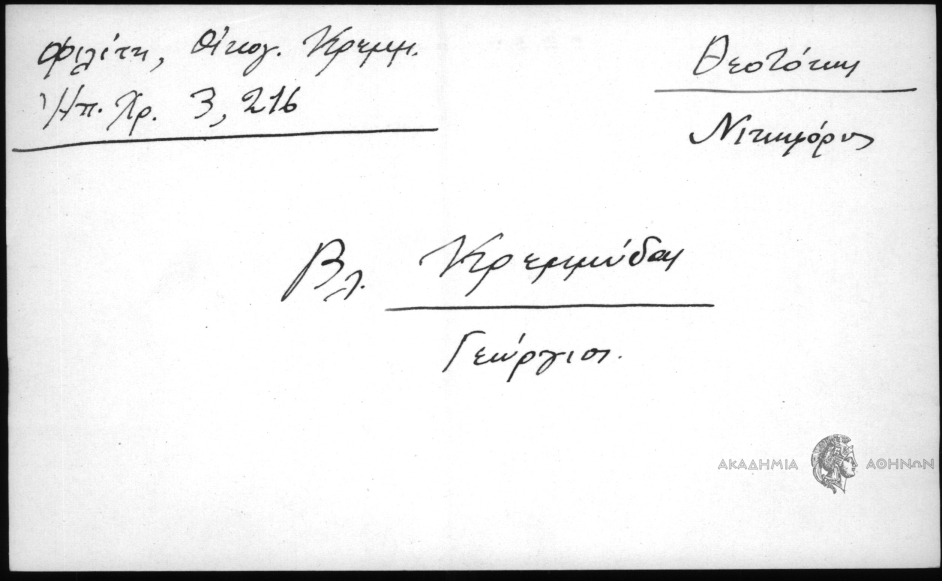 Φιλίτη, Οἰκογ. Κρεμμ.
Ἠπ. Χρ. 3, 216
Θεοτόκης
Νικηφόρος
Βλ. Κρεμμύδας
Γεώργιος.
ΑΚΑΔΗΜΙΑ ΑΘΗΝΩΝ